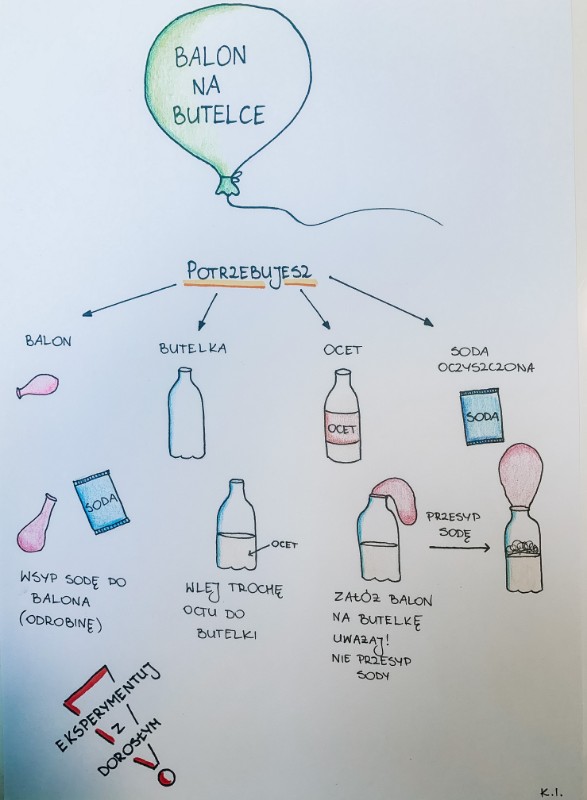 BALON
NA
BUTELCE
POTRZEBUJESZ
BALON
BUTELKA
OCET
SODA
OCZYSZCZONA
OCET
SODA
SODA
WSYP SODĘ DO
BALONA
(ODROBINĘ)
OCET
WLEJ TROCHĘ
OCTU DO
BUTELKI
ZAŁÓŻ BALON
NA BUTELKĘ
UWAŻAJ!
NIE PRZESYP
SODY
PRZESYP
SODĘ
EKSPERYMENTUJ
Z
DOROSŁYM
K.I.